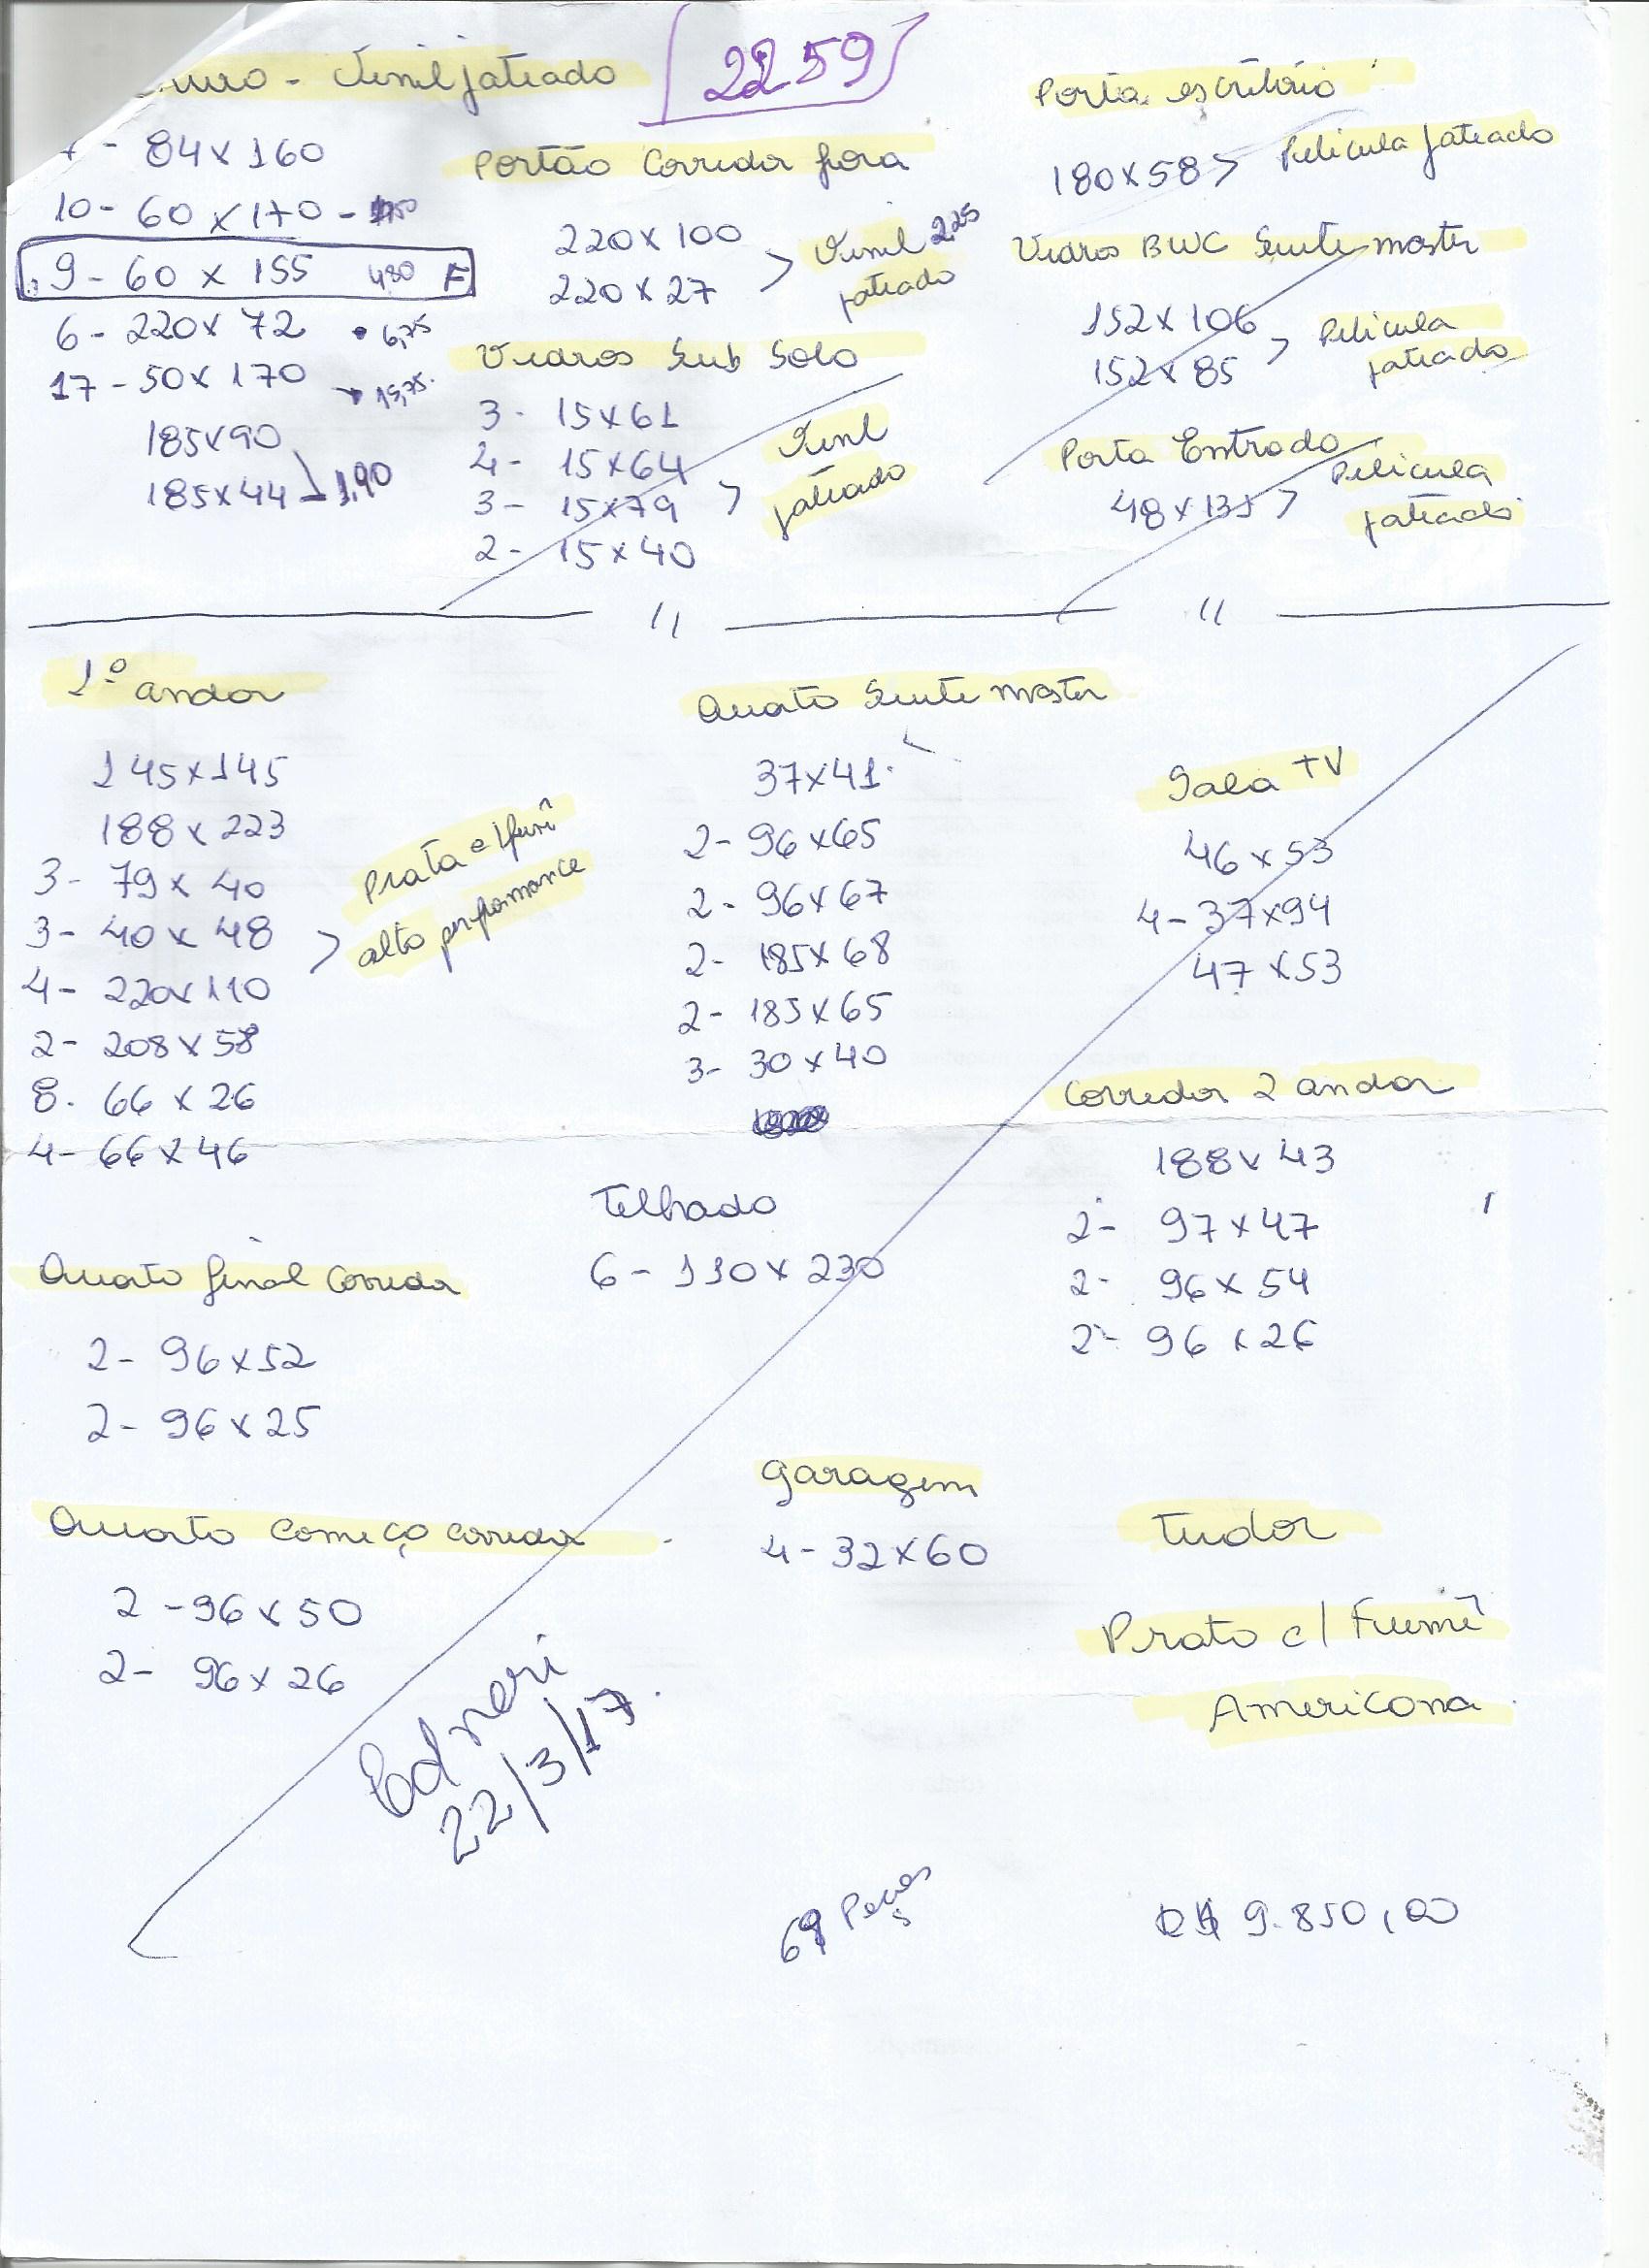 Vinil jateado
2259
84x160
10- 60x170 -
9- 60 x 155 480 F
6- 220x 72 • 6,75
17- 50x170 → 15,75
185x90
185x44 1,90
Portão Corredor fora
220x100
220x27
Vinil 2,25
jateado
Vidros Sub Solo
3- 15x61
4- 15x64
3- 15x79
2- 15x40
Vinil
jateado
Porta escritório
180x58 > Pelicula jateado
Vidros BWC Suite master
152x106
152x85
Pelicula
jateado
Porta Entrada
48x135 > Pelicula
jateado
1º andar
145x145
188x223
3- 79x 40
3- 40x 48
4- 220x110
2- 208x58
8- 66x26
4- 66x46
Prata e
alta performance
Quarto Suite master
37x41
2- 96x65
2- 96x67
2- 185x68
2- 185x65
3- 30x40
Sala TV
46x53
4- 37x94
47x53
Corredor 2 andar
188x43
2- 97x47
2- 96x54
2- 96x26
Telhado
6- 110x230
Quarto final Corredor
2- 96x52
2- 96x25
Quarto começo corredor
2- 96x50
2- 96x26
garagem
4- 32x60
Tudor
Prata c/ Fumê
Americana
22/3/17
Peças
R$ 9.850,00